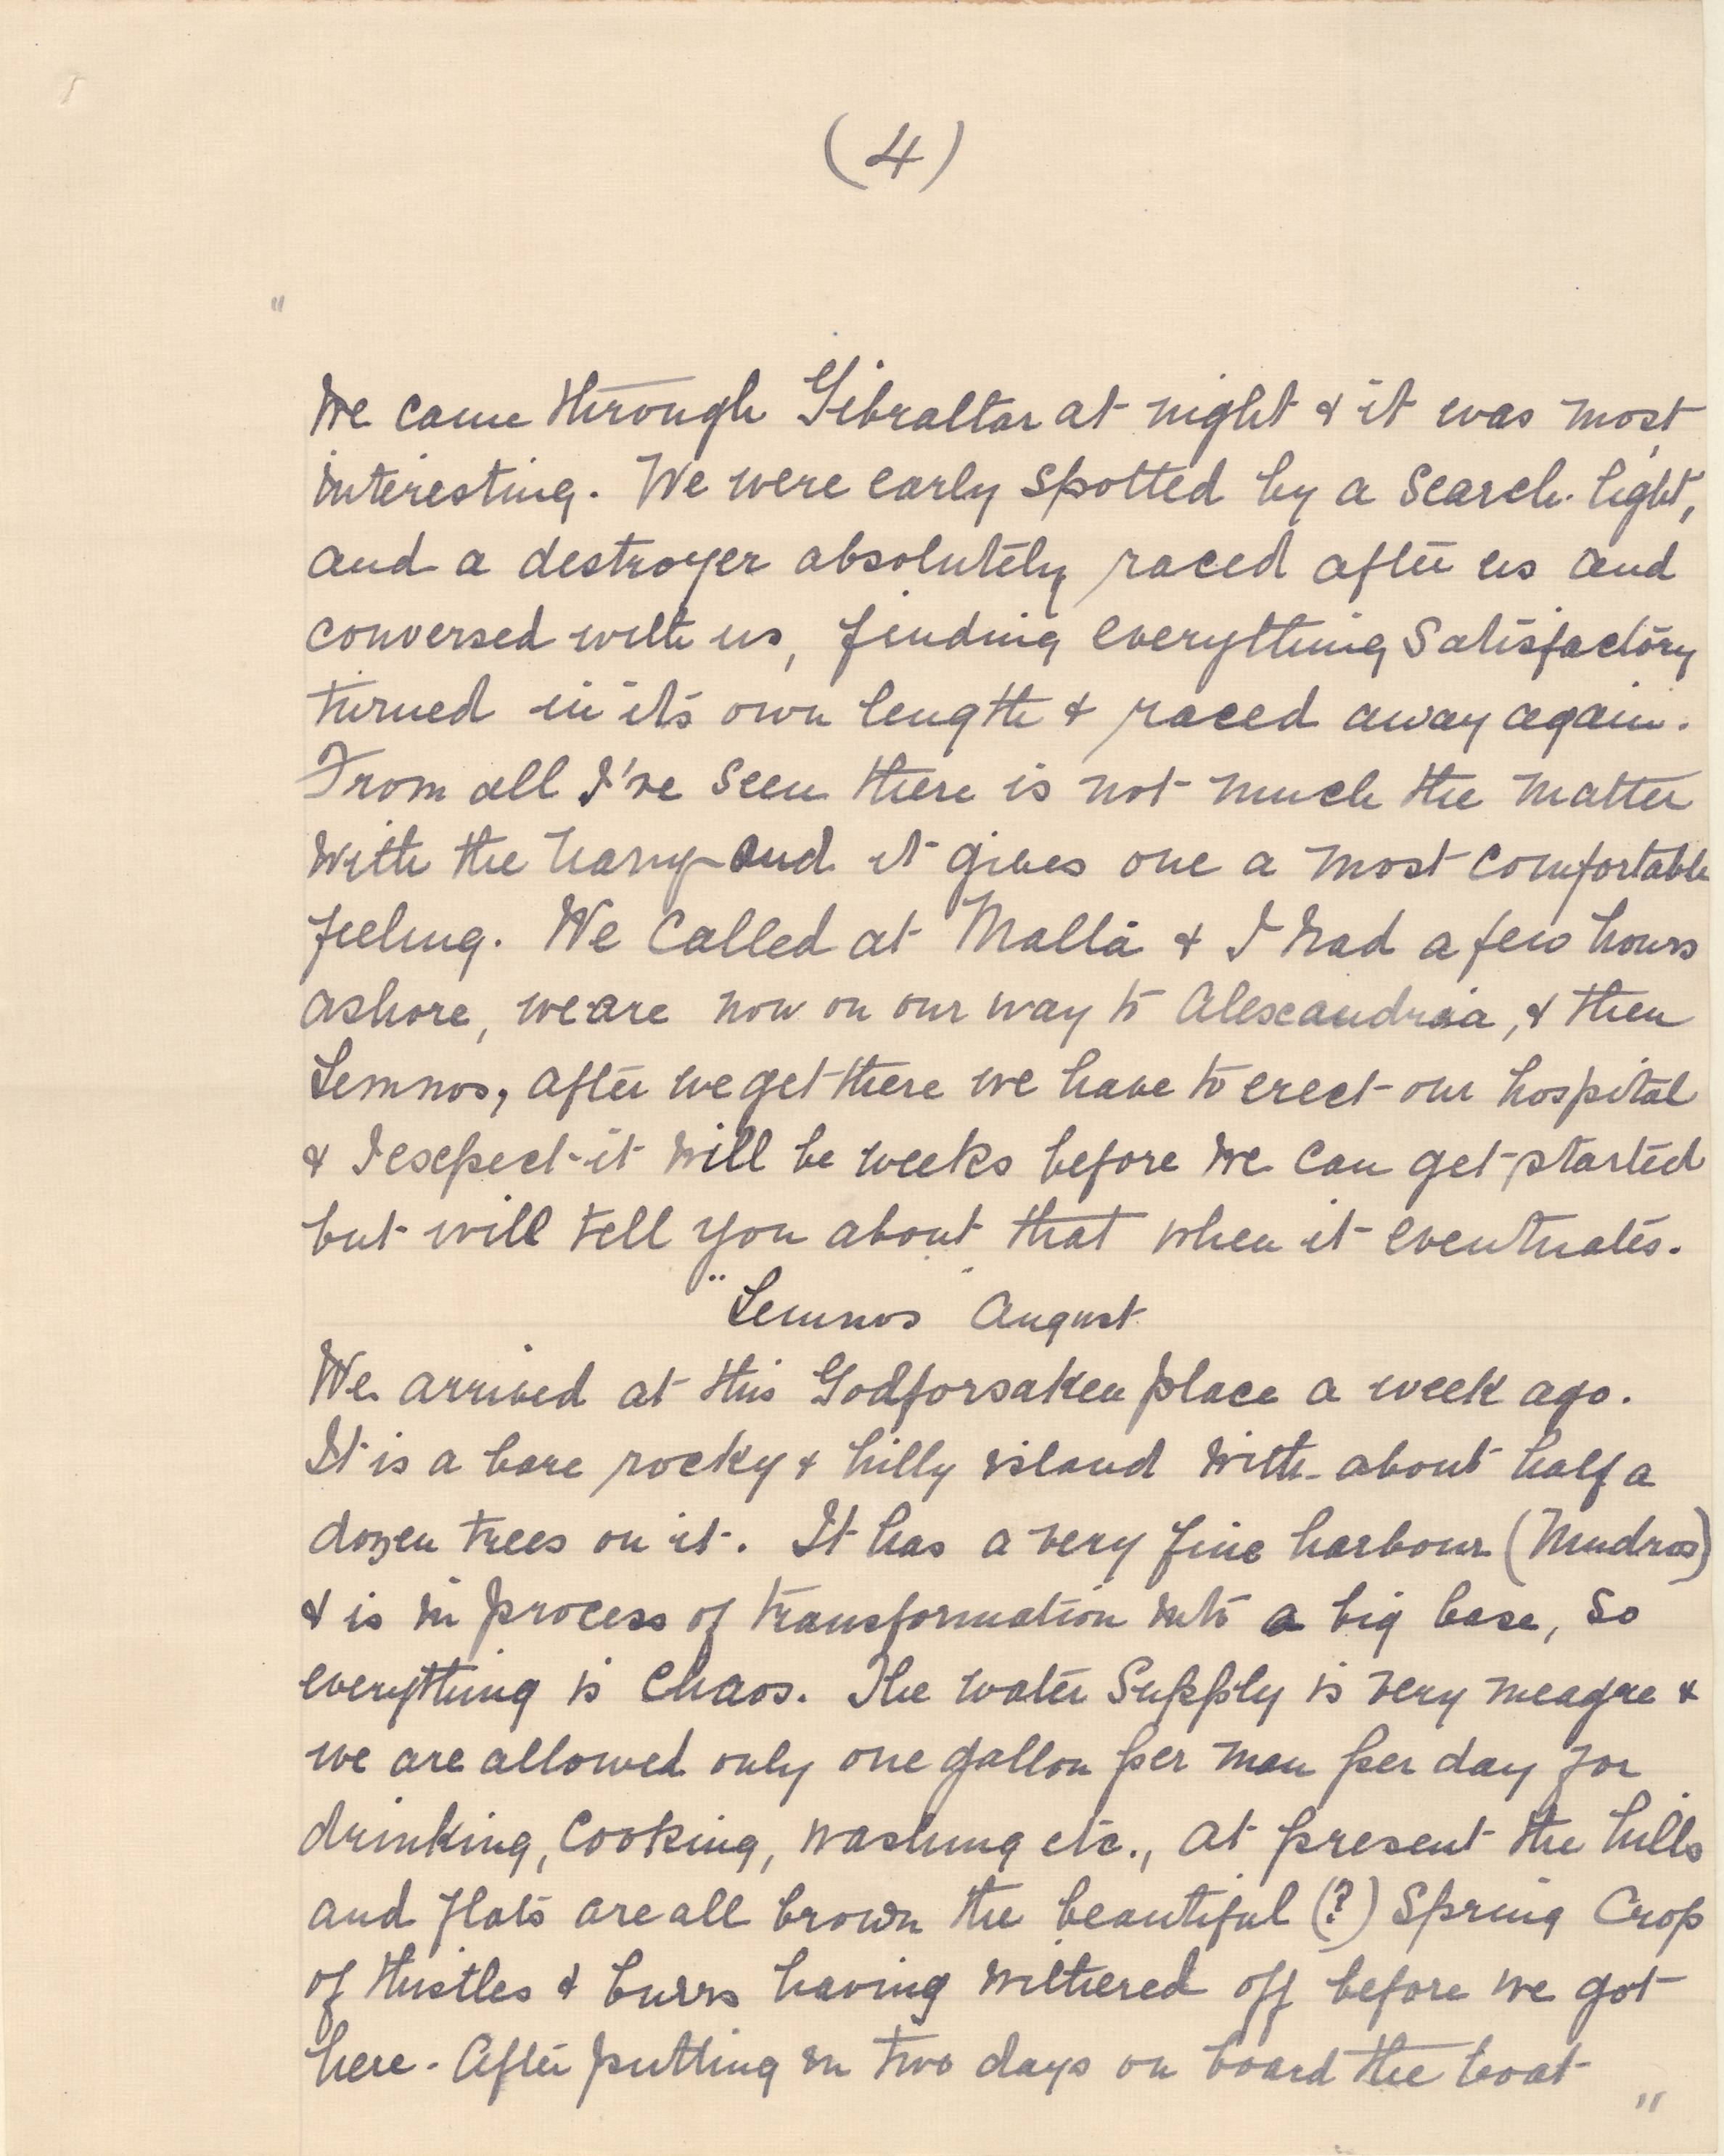 (4)
"
We came through Gibraltar at night & it was most
interesting. We were early spotted by a Search-light,
and a destroyer absolutely raced after us and
conversed with us, finding everything Satisfactory
turned in it's own length & raced away again.
From all I've seen there is not much the matter
with the navy and it gives one a most comfortable
feeling. We called at Malta & I had a few hours
ashore, we are now on our way to Alexandria, & then
Lemnos, after we get there we have to erect our hospital
& I expect it will be weeks before we can get started
but will tell you about that when it eventuates.
"Lemnos" August
We arrived at this Godforsaken place a week ago.
It is a bare rocky & hilly island with about half a
dozen trees on it. It has a very fine harbour (Mudros)
& is in process of transformation into a big base, so
everything is chaos. The water Supply is very meagre &
we are allowed only one gallon per man per day for
drinking, cooking, washing etc., at present the hills
and flats are all brown the beautiful (?) Spring Crop
of thistles & burrs having withered off before we got
here. After putting in two days on board the boat "